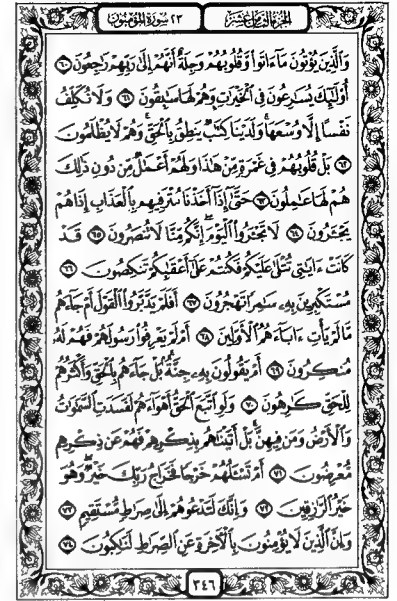 الجزء الثامن عشر
٢٣ سورة المؤمنون
وَالَّذِينَ يُؤْتُونَ مَآ ءَاتَوا۟ وَّقُلُوبُهُمْ وَجِلَةٌ أَنَّهُمْ إِلَىٰ رَبِّهِمْ رَٰجِعُونَ ٦٠
أُو۟لَـٰٓئِكَ يُسَـٰرِعُونَ فِى ٱلْخَيْرَٰتِ وَهُمْ لَهَا سَـٰبِقُونَ ٦١ وَلَا نُكَلِّفُ
نَفْسًا إِلَّا وُسْعَهَا وَلَدَيْنَا كِتَـٰبٌ يَنطِقُ بِٱلْحَقِّ وَهُمْ لَا يُظْلَمُونَ
٦٢ بَلْ قُلُوبُهُمْ فِى غَمْرَةٍ مِّنْ هَـٰذَا وَلَهُمْ أَعْمَـٰلٌ مِّن دُونِ ذَٰلِكَ
هُمْ لَهَا عَـٰمِلُونَ ٦٣ حَتَّىٰٓ إِذَآ أَخَذْنَا مُتْرَفِيهِم بِٱلْعَذَابِ إِذَا هُمْ
يَجْـَٔرُونَ ٦٤ لَا تَجْـَٔرُوا۟ ٱلْيَوْمَ إِنَّكُم مِّنَّا لَا تُنصَرُونَ ٦٥ قَدْ
كَانَتْ ءَايَـٰتِى تُتْلَىٰ عَلَيْكُمْ فَكُنتُمْ عَلَىٰٓ أَعْقَـٰبِكُمْ تَنكِصُونَ ٦٦
مُسْتَكْبِرِينَ بِهِۦ سَـٰمِرًا تَهْجُرُونَ ٦٧ أَفَلَمْ يَدَّبَّرُوا۟ ٱلْقَوْلَ أَمْ جَآءَهُم
مَّا لَمْ يَأْتِ ءَابَآءَهُمُ ٱلْأَوَّلِينَ ٦٨ أَمْ لَمْ يَعْرِفُوا۟ رَسُولَهُمْ فَهُمْ لَهُۥ
مُنكِرُونَ ٦٩ أَمْ يَقُولُونَ بِهِۦ جِنَّةٌۢ بَلْ جَآءَهُم بِٱلْحَقِّ وَأَكْثَرُهُمْ
لِلْحَقِّ كَـٰرِهُونَ ٧٠ وَلَوِ ٱتَّبَعَ ٱلْحَقُّ أَهْوَآءَهُمْ لَفَسَدَتِ ٱلسَّمَـٰوَٰتُ
وَٱلْأَرْضُ وَمَن فِيهِنَّ بَلْ أَتَيْنَـٰهُم بِذِكْرِهِمْ فَهُمْ عَن ذِكْرِهِم
مُّعْرِضُونَ ٧١ أَمْ تَسْـَٔلُهُمْ خَرْجًا فَخَرَاجُ رَبِّكَ خَيْرٌ وَهُوَ
خَيْرُ ٱلرَّٰزِقِينَ ٧٢ وَإِنَّكَ لَتَدْعُوهُمْ إِلَىٰ صِرَٰطٍ مُّسْتَقِيمٍ ٧٣
وَإِنَّ ٱلَّذِينَ لَا يُؤْمِنُونَ بِٱلْـَٔاخِرَةِ عَنِ ٱلصِّرَٰطِ لَنَـٰكِبُونَ ٧٤
٣٤٦